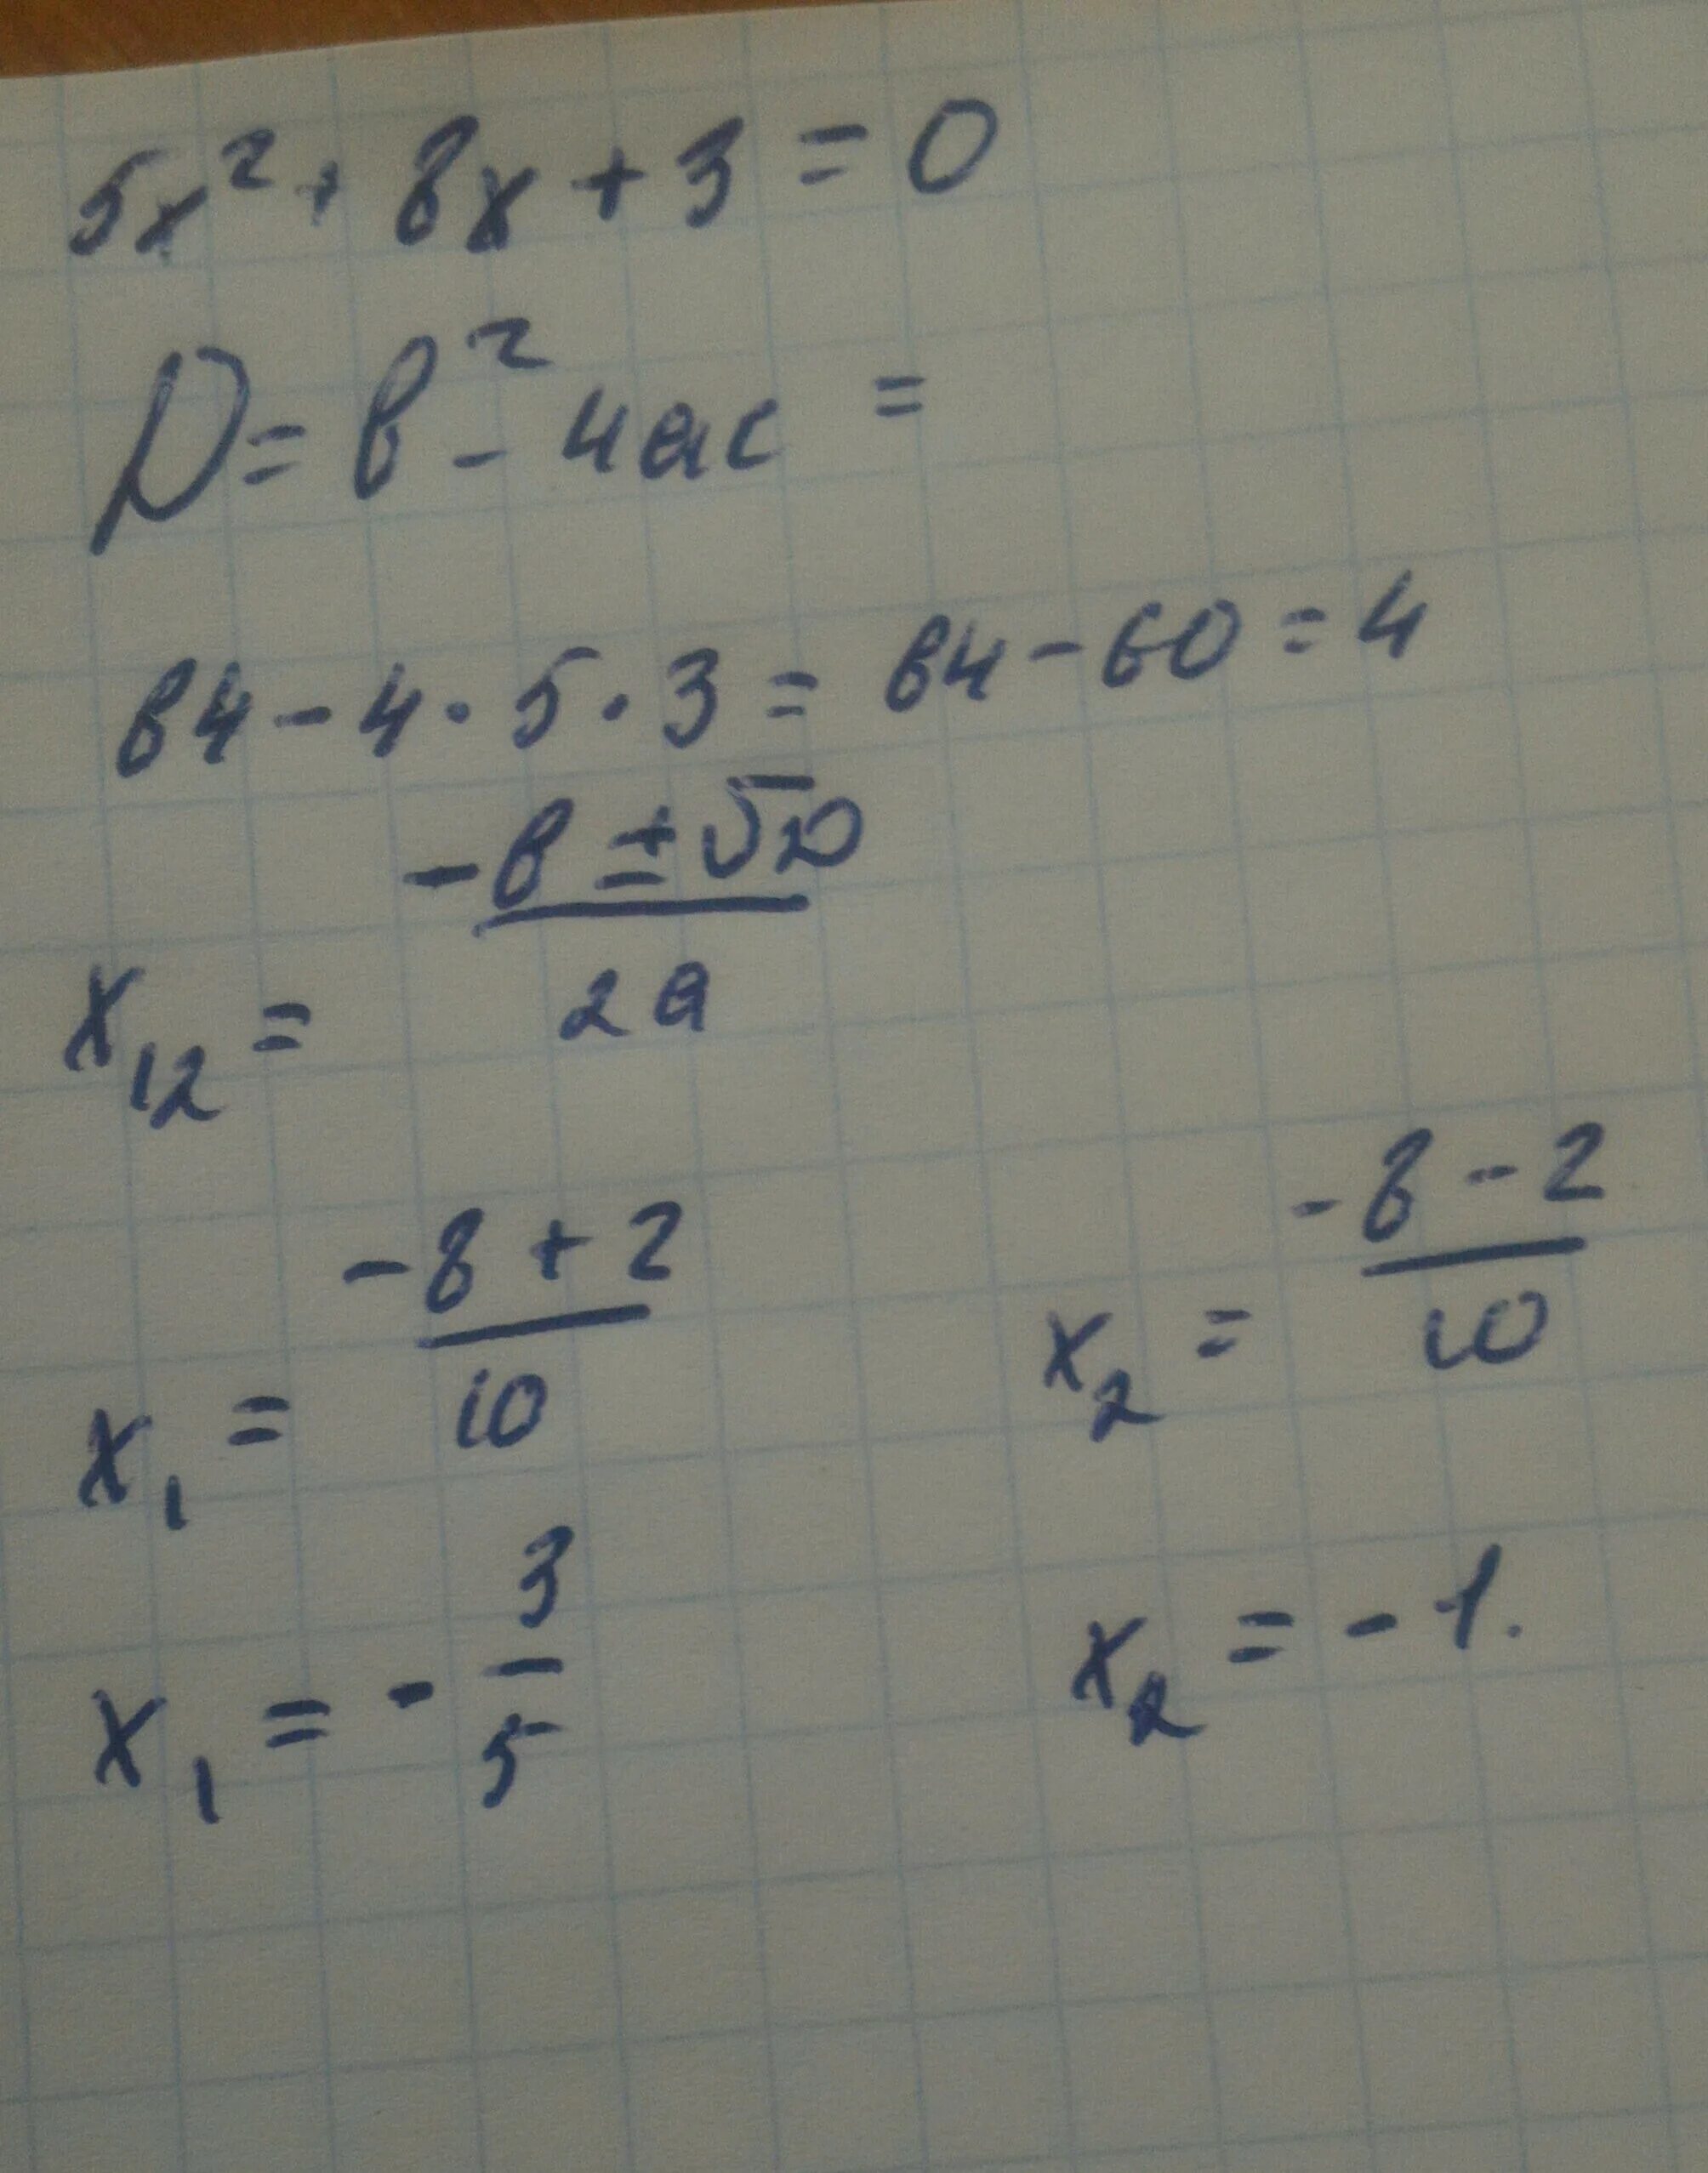 5x² + 8x + 3 = 0
D = в² - 4ac =
64 - 4 · 5 · 3 = 64 - 60 = 4
x₁₂ = (-в ± √D) / 2a
x₁ = (-8 + 2) / 10    x₂ = (-8 - 2) / 10
x₁ = - 3/5    x₂ = -1.